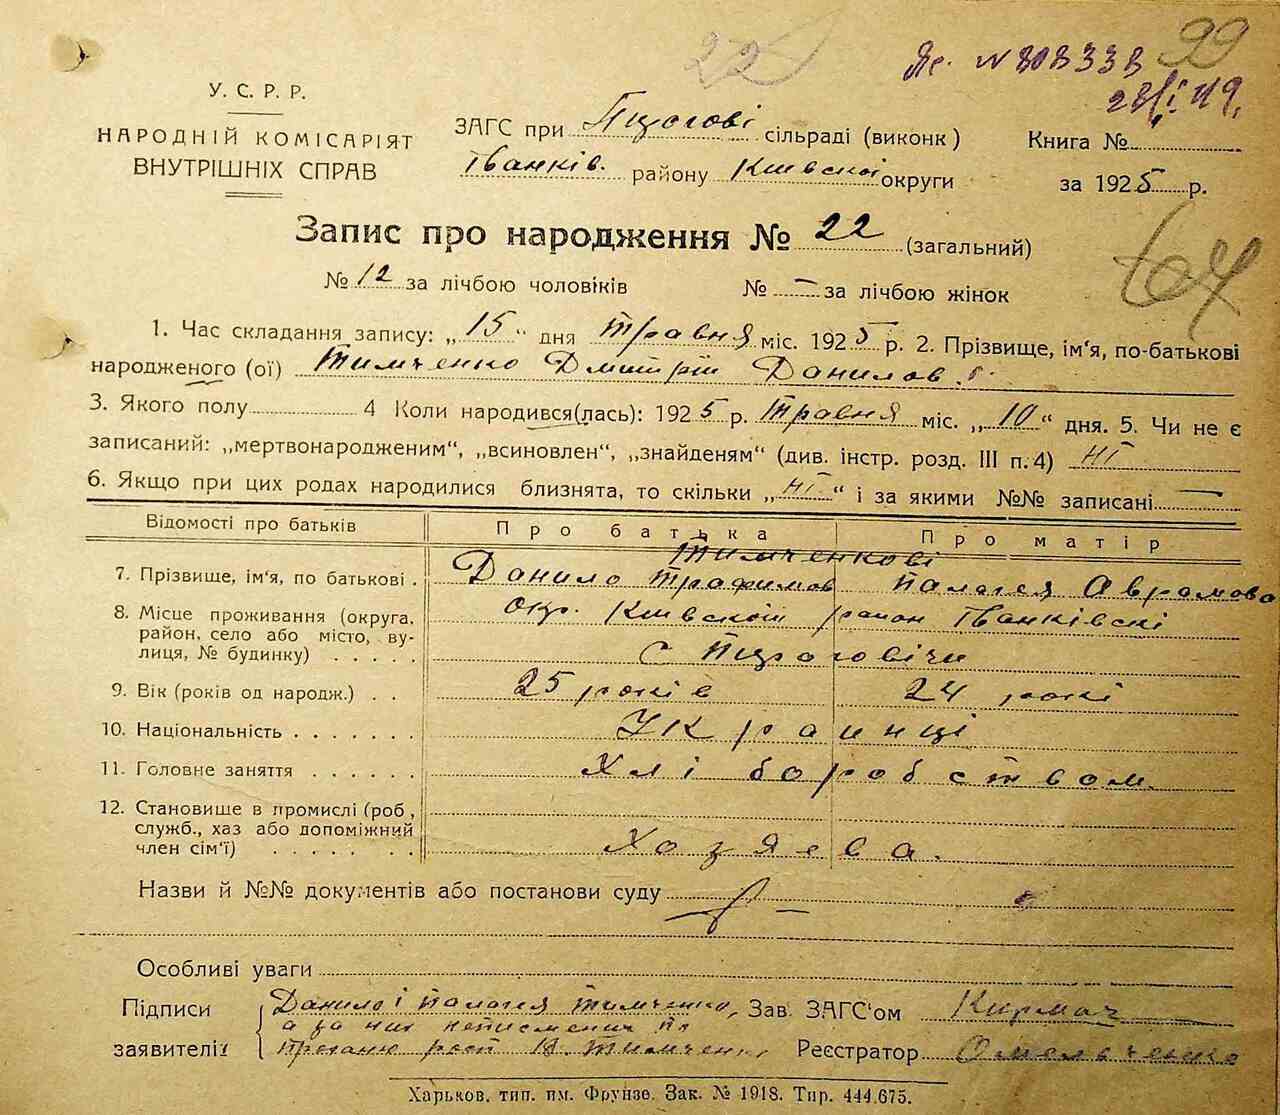 22 Яс. № 808338 99
23/I 49.
У. С. Р. Р.
НАРОДНІЙ КОМІСАРІЯТ
ВНУТРІШНІХ СПРАВ
ЗАГС при Пирогові сільраді (виконк)
Іванків. району Київскої округи
Книга №
за 1925 р.
Запис про народження № 22 (загальний)
№ 12 за лічбою чоловіків № — за лічбою жінок
64
1. Час складання запису: „15" дня Травня міс. 1925 р. 2. Прізвище, ім'я, по-батькові
народженого (ої) Тимченко Дмитрій Данилов.
3. Якого полу 4 Коли народився(лась): 1925 р. Травня міс. „10" дня. 5. Чи не є
записаний: „мертвонародженим", „всиновлен", „знайденям" (див. інстр. розд. III п. 4) ні
6. Якщо при цих родах народилися близнята, то скільки „ні" і за якими №№ записані —
Відомості про батьків Про батька Про матір
Тимченкові
7. Прізвище, ім'я, по батькові . Данило Трафимов Палагея Аврамова
8. Місце проживання (округа, окр. Київскої район Іванківскі
район, село або місто, ву-
лиця, № будинку) . . . . . с Пироговічи
9. Вік (років од народж.) . . 25 років 24 рокі
10. Національність . . . . . . . Украинці
11. Головне заняття . . . . . . Хліборобством.
12. Становище в промислі (роб,
служб., хаз або допоміжний
член сім'ї) . . . . . . . . Хозяева.
Назви й №№ документів або постанови суду —
Особливі уваги
Підписи Данило і Палагея Тимченко, Зав. ЗАГС'ом Кирмач
а за них неписьмених по
заявителів проханю росп Тимченко Реєстратор Омельченко
Харьков. тип. им. Фрунзе. Зак. № 1918. Тир. 444.675.